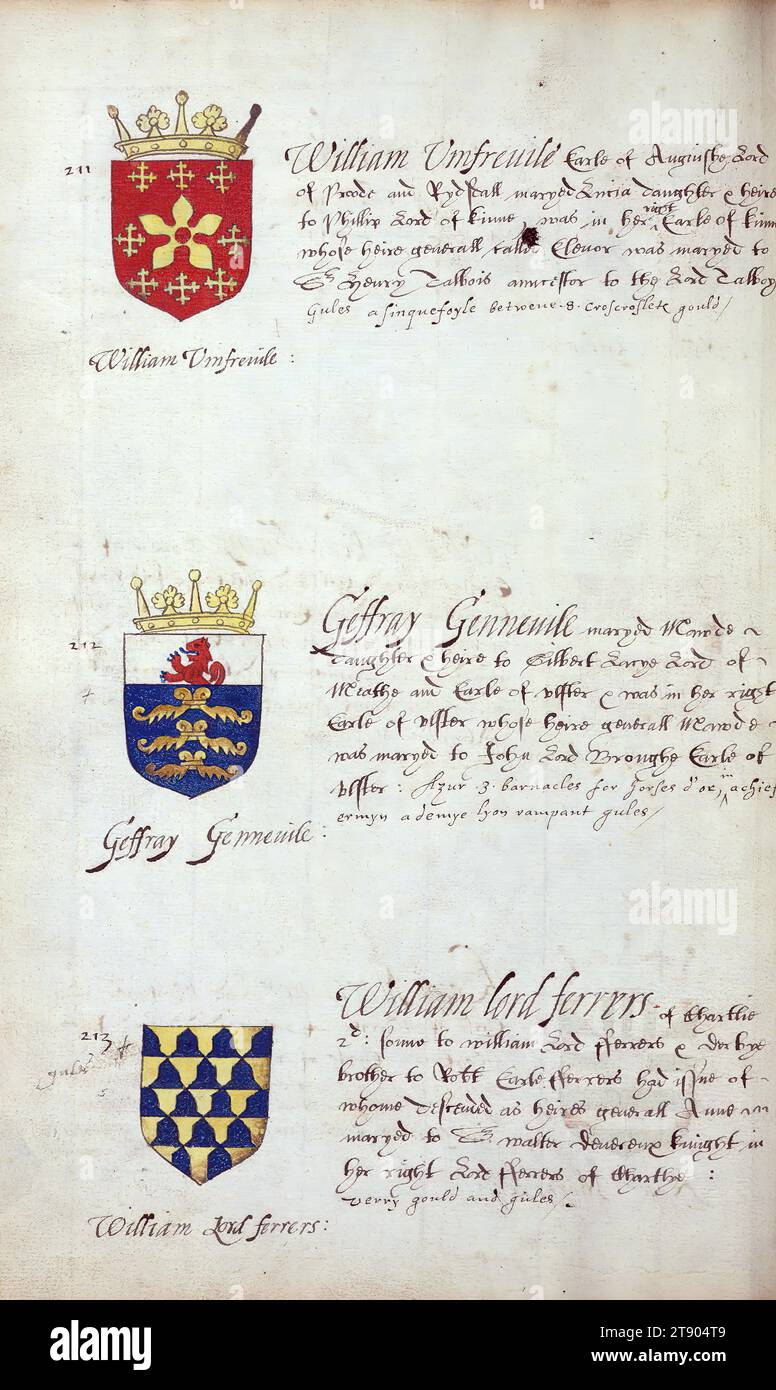 211
William Vmfreuile Earle of Anguishe Lord
of Proode and Rydsdall maryed Lucia daughter & heire
to Phillip Lord of Kinne, was in her right Earle of kinn
whose heire generall called Elenor was maryed to
Sr Henry Talbois anncestor to the Lord Talboy
Gules a sinquefoyle betwene .8. croscroslets gould/
William Vmfreuile :
212
Geffray Genneuile maryed Mawde
daughter & heire to Gilbert Lacye Lord of
Meathe and Earle of vlster & was in her right
Earle of vlster whose heire generall Mawde
was maryed to John Lord Broughe Earle of
vlster : Azur 3. barnacles for horses d'or, in achief
ermyn a demye lyon rampant gules/
Geffray Genneuile :
213
gules
William lord ferrers of Chartlie
2d: sonne to william Lord fferrers & derbye
brother to Robt Earle fferrers had issue of
whome descended as heires generall Anne
maryed to Sr walter devereux knight in
her right Lord fferrers of Chartlye :
verry gould and gules/.
William Lord ferrers:
alamy
Image ID: 2T904T9
www.alamy.com